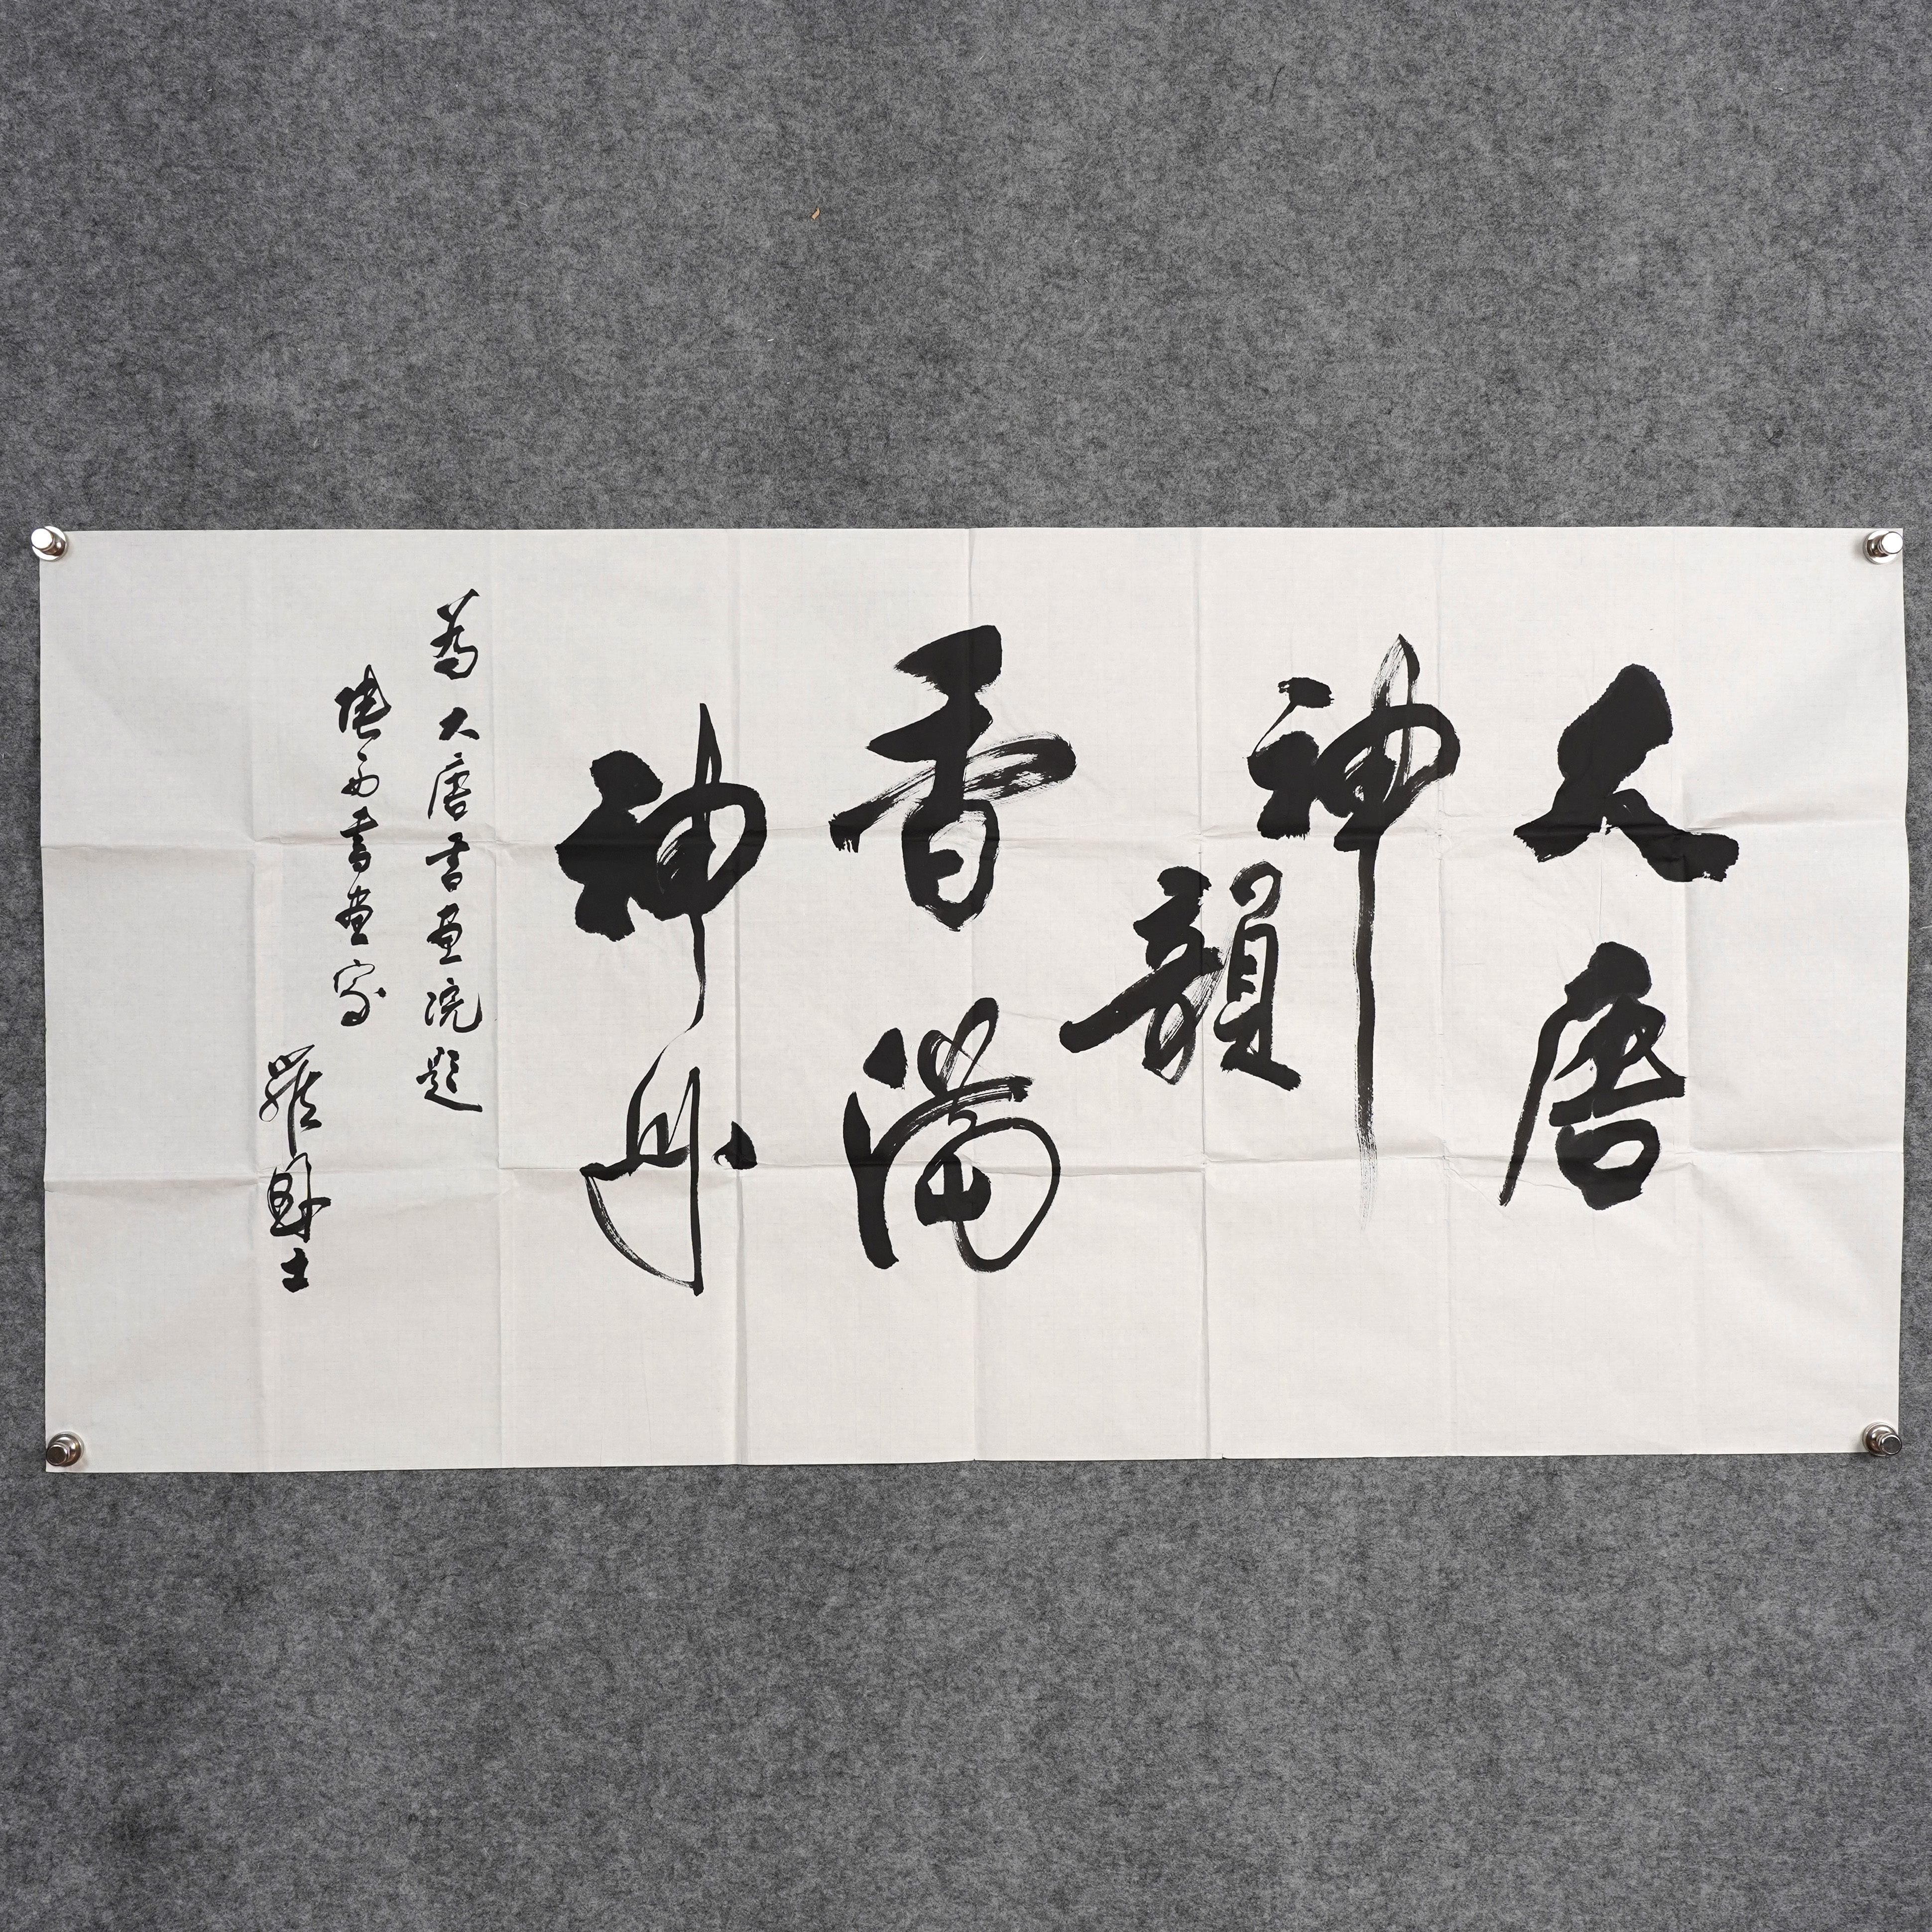 大唐
神韻
香滿
神州
為大唐書畫院題
陝西書畫家
羅國士